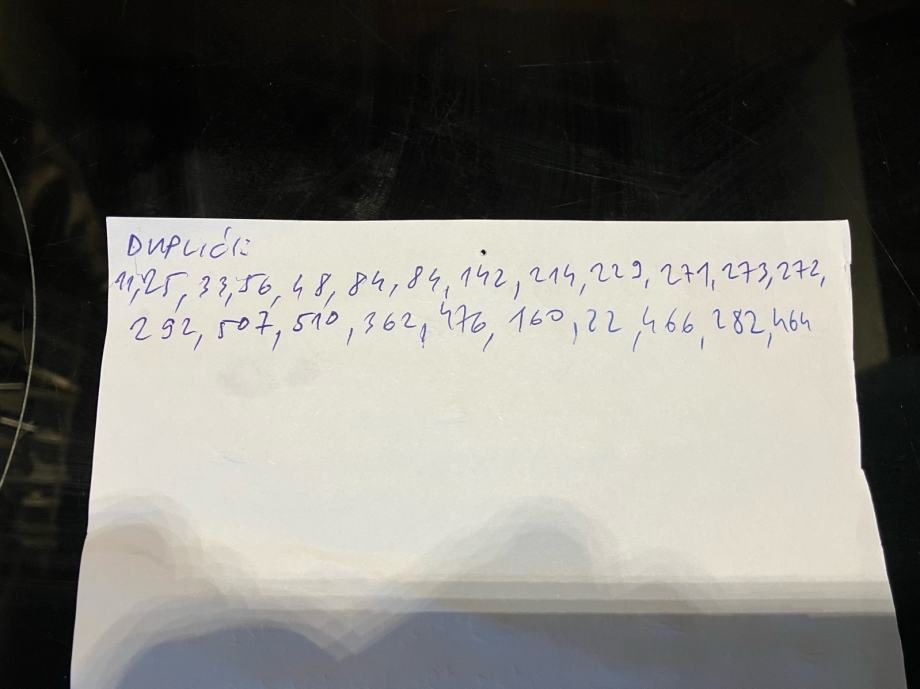 DUPLIĆI:
11,25,33,56,48,84,84,142,214,229,271,273,272,
292,507,510,362,476,160,22,466,282,464